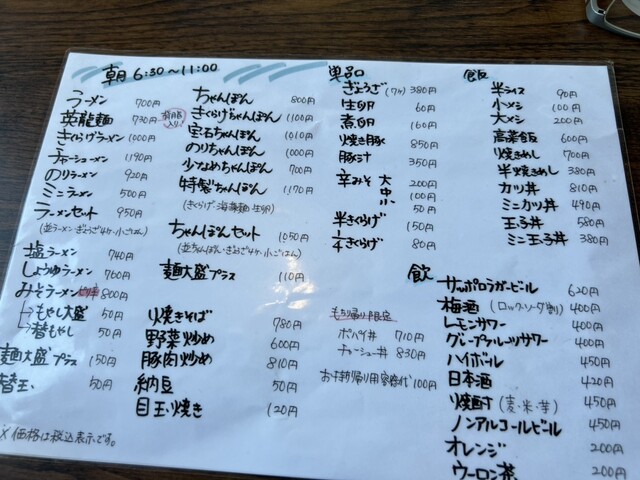 朝 6:30〜11:00
ラーメン 700円
英龍麺 730円
きくらげラーメン 1000円
チャーシューメン 1190円
のりラーメン 920円
ミニラーメン 500円
ラーメンセット 950円
(並ラーメン・ぎょうざ4ケ・小ごはん)
塩ラーメン 740円
しょうゆラーメン 760円
みそラーメン 800円
もやし大盛 50円
替もやし 50円
麺大盛プラス 150円
替玉 50円
※価格は税込表示です。
ちゃんぽん 800円
きくらげちゃんぽん 1100円
宝石ちゃんぽん 1100円
のりちゃんぽん 1000円
少なめちゃんぽん 700円
特製ちゃんぽん 1170円
(きくらげ・海藻麺・生卵)
ちゃんぽんセット 1050円
(並ちゃんぽん・ぎょうざ4ケ・小ごはん)
麺大盛プラス 110円
焼きそば 780円
野菜炒め 600円
豚肉炒め 810円
納豆 50円
目玉焼き 120円
単品
ぎょうざ(7ヶ) 380円
生卵 60円
煮卵 160円
焼き豚 850円
豚汁 350円
辛みそ 大 200円
中 100円
小 50円
半きくらげ 150円
1/4きくらげ 80円
もち帰り限定
ポパイ丼 710円
チャーシュー丼 830円
お持帰り用容器代 100円
飯
半ライス 90円
小メシ 100円
大メシ 200円
高菜飯 600円
焼きめし 700円
半焼きめし 380円
カツ丼 810円
ミニカツ丼 490円
玉子丼 580円
ミニ玉子丼 380円
飲
サッポロラガービール 620円
梅酒(ロック・ソーダ割) 400円
レモンサワー 400円
グレープフルーツサワー 400円
ハイボール 450円
日本酒 420円
焼酎(麦・米・芋) 450円
ノンアルコールビール 450円
オレンジ 200円
ウーロン茶 200円